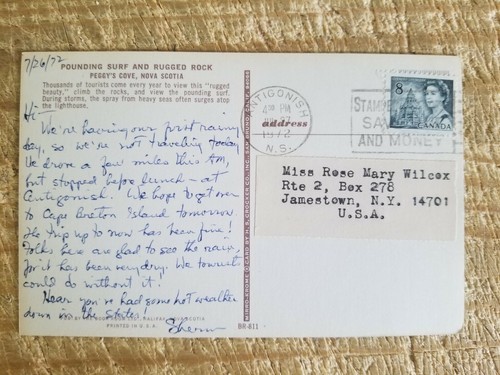 7/26/72
POUNDING SURF AND RUGGED ROCK
PEGGY'S COVE, NOVA SCOTIA
Thousands of tourists come every year to view this "rugged
beauty," climb the rocks, and view the pounding surf.
During storms, the spray from heavy seas often surges atop
the lighthouse.
Hi—
We're having our first rainy
day, so we're not traveling today.
We drove a few miles this AM,
but stopped before lunch — at
Antigonish. We hope to get over
to Cape Breton Island tomorrow.
The trip up to now has been fine!
Folks here are glad to see the rain,
for it has been very dry. We tourists
could do without it!
Hear you've had some hot weather
down in the states!
PRINTED IN U.S.A.
BR-811
ANTIGONISH
PM
1972
N.S.
address
STAMP
SA
AND MONEY
8
CANADA
Miss Rose Mary Wilcox
Rte 2, Box 278
Jamestown, N.Y. 14701
U.S.A.